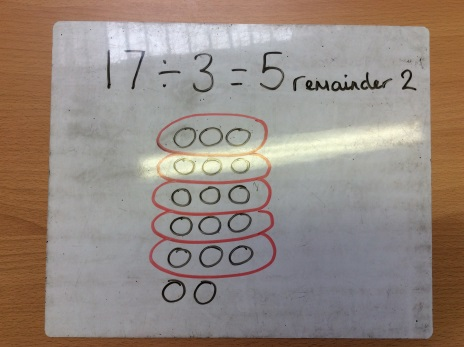 17 ÷ 3 = 5 remainder 2